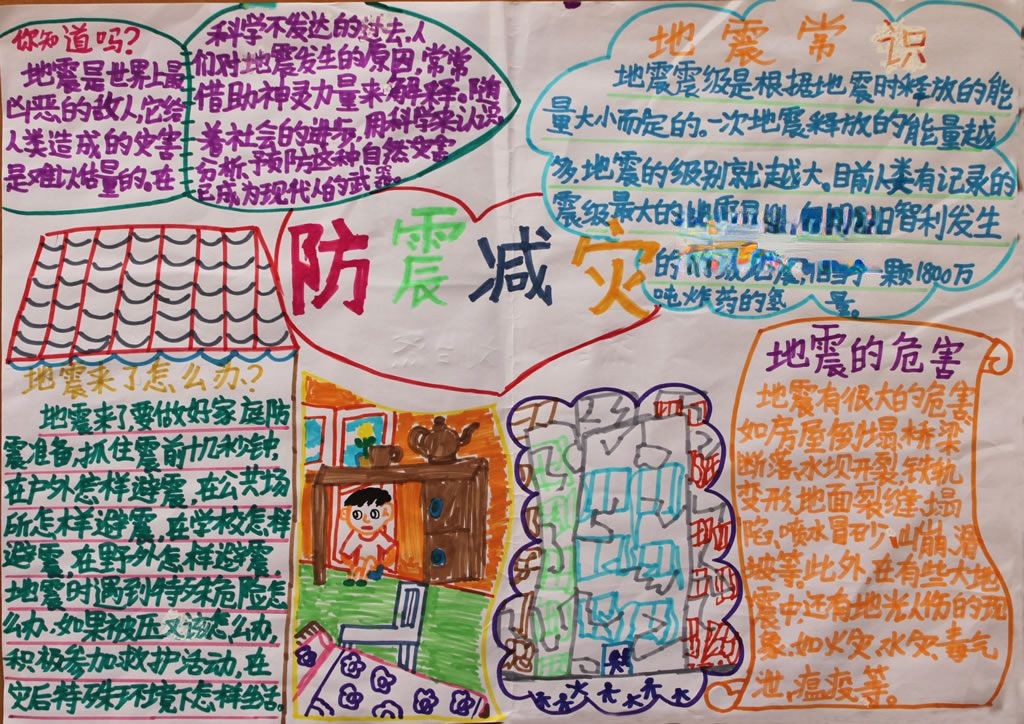 你知道吗?
地震是世界上最
凶恶的敌人,它给
人类造成的灾害
是难以估量的。在
科学不发达的过去,人
们对地震发生的原因,常常
借助神灵力量来解释。随
着社会的进步,用科学来认识、
分析、预防这种自然灾害
已成为现代人的武器。
地震常识
地震震级是根据地震时释放的能
量大小而定的。一次地震释放的能量越
多,地震的级别就越大。目前人类有记录的
震级最大的地震是
智利发生
的
一颗1800万
吨炸药的
量。
防震减灾
地震来了怎么办?
地震来了,要做好家庭防
震准备,抓住震前十几秒钟,
在户外怎样避震,在公共场
所怎样避震,在学校怎样
避震,在野外怎样避震,
地震时遇到特殊危险怎
么办,如果被压又该怎么办,
积极参加救护活动,在
灾后特殊环境下怎样生活。
地震的危害
地震有很大的危害,
如房屋倒塌,桥梁
断落,水坝开裂,铁轨
变形,地面裂缝、塌
陷,喷水冒砂,山崩、滑
坡等。此外,在有些大地
震中,还有地光人伤的现
象,如火灾、水灾、毒气
泄,瘟疫等。